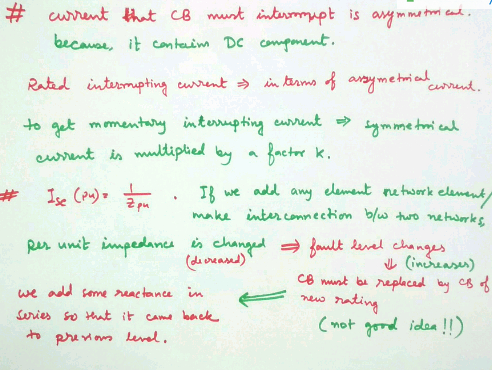 # current that CB must interrupt is asymmetrical.
because, it contains DC component.
Rated interrupting current ⇒ in terms of assymetrical current.
to get momentary interrupting current ⇒ symmetrical
current is multiplied by a factor k.
# Isc (pu) = 1/Zpu . If we add any element network element/
make interconnection b/w two networks,
per unit impedance is changed ⇒ fault level changes
(decreased) ⇓ (increases)
CB must be replaced by CB of
new rating
(not good idea!!)
⇐ we add some reactance in
series so that it came back
to previous level.